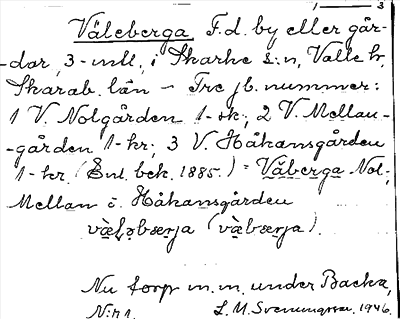 1 — 3
Väleberga F.d. by eller går-
-dar, 3-mtl, i Skarke s:n, Valle hr,
Skarab. län – Tre jb. nummer:
1 V. Nolgården 1-sk; 2 V. Mellan-
-gården 1-kr; 3 V. Håkansgården
1-kr. (Enl. bek. 1885.) = Väberga Nol-,
Mellan o. Håkansgården
(
Nu torp m.m. under Backa,
N:r 1. L. M. Svenungsson. 1946.